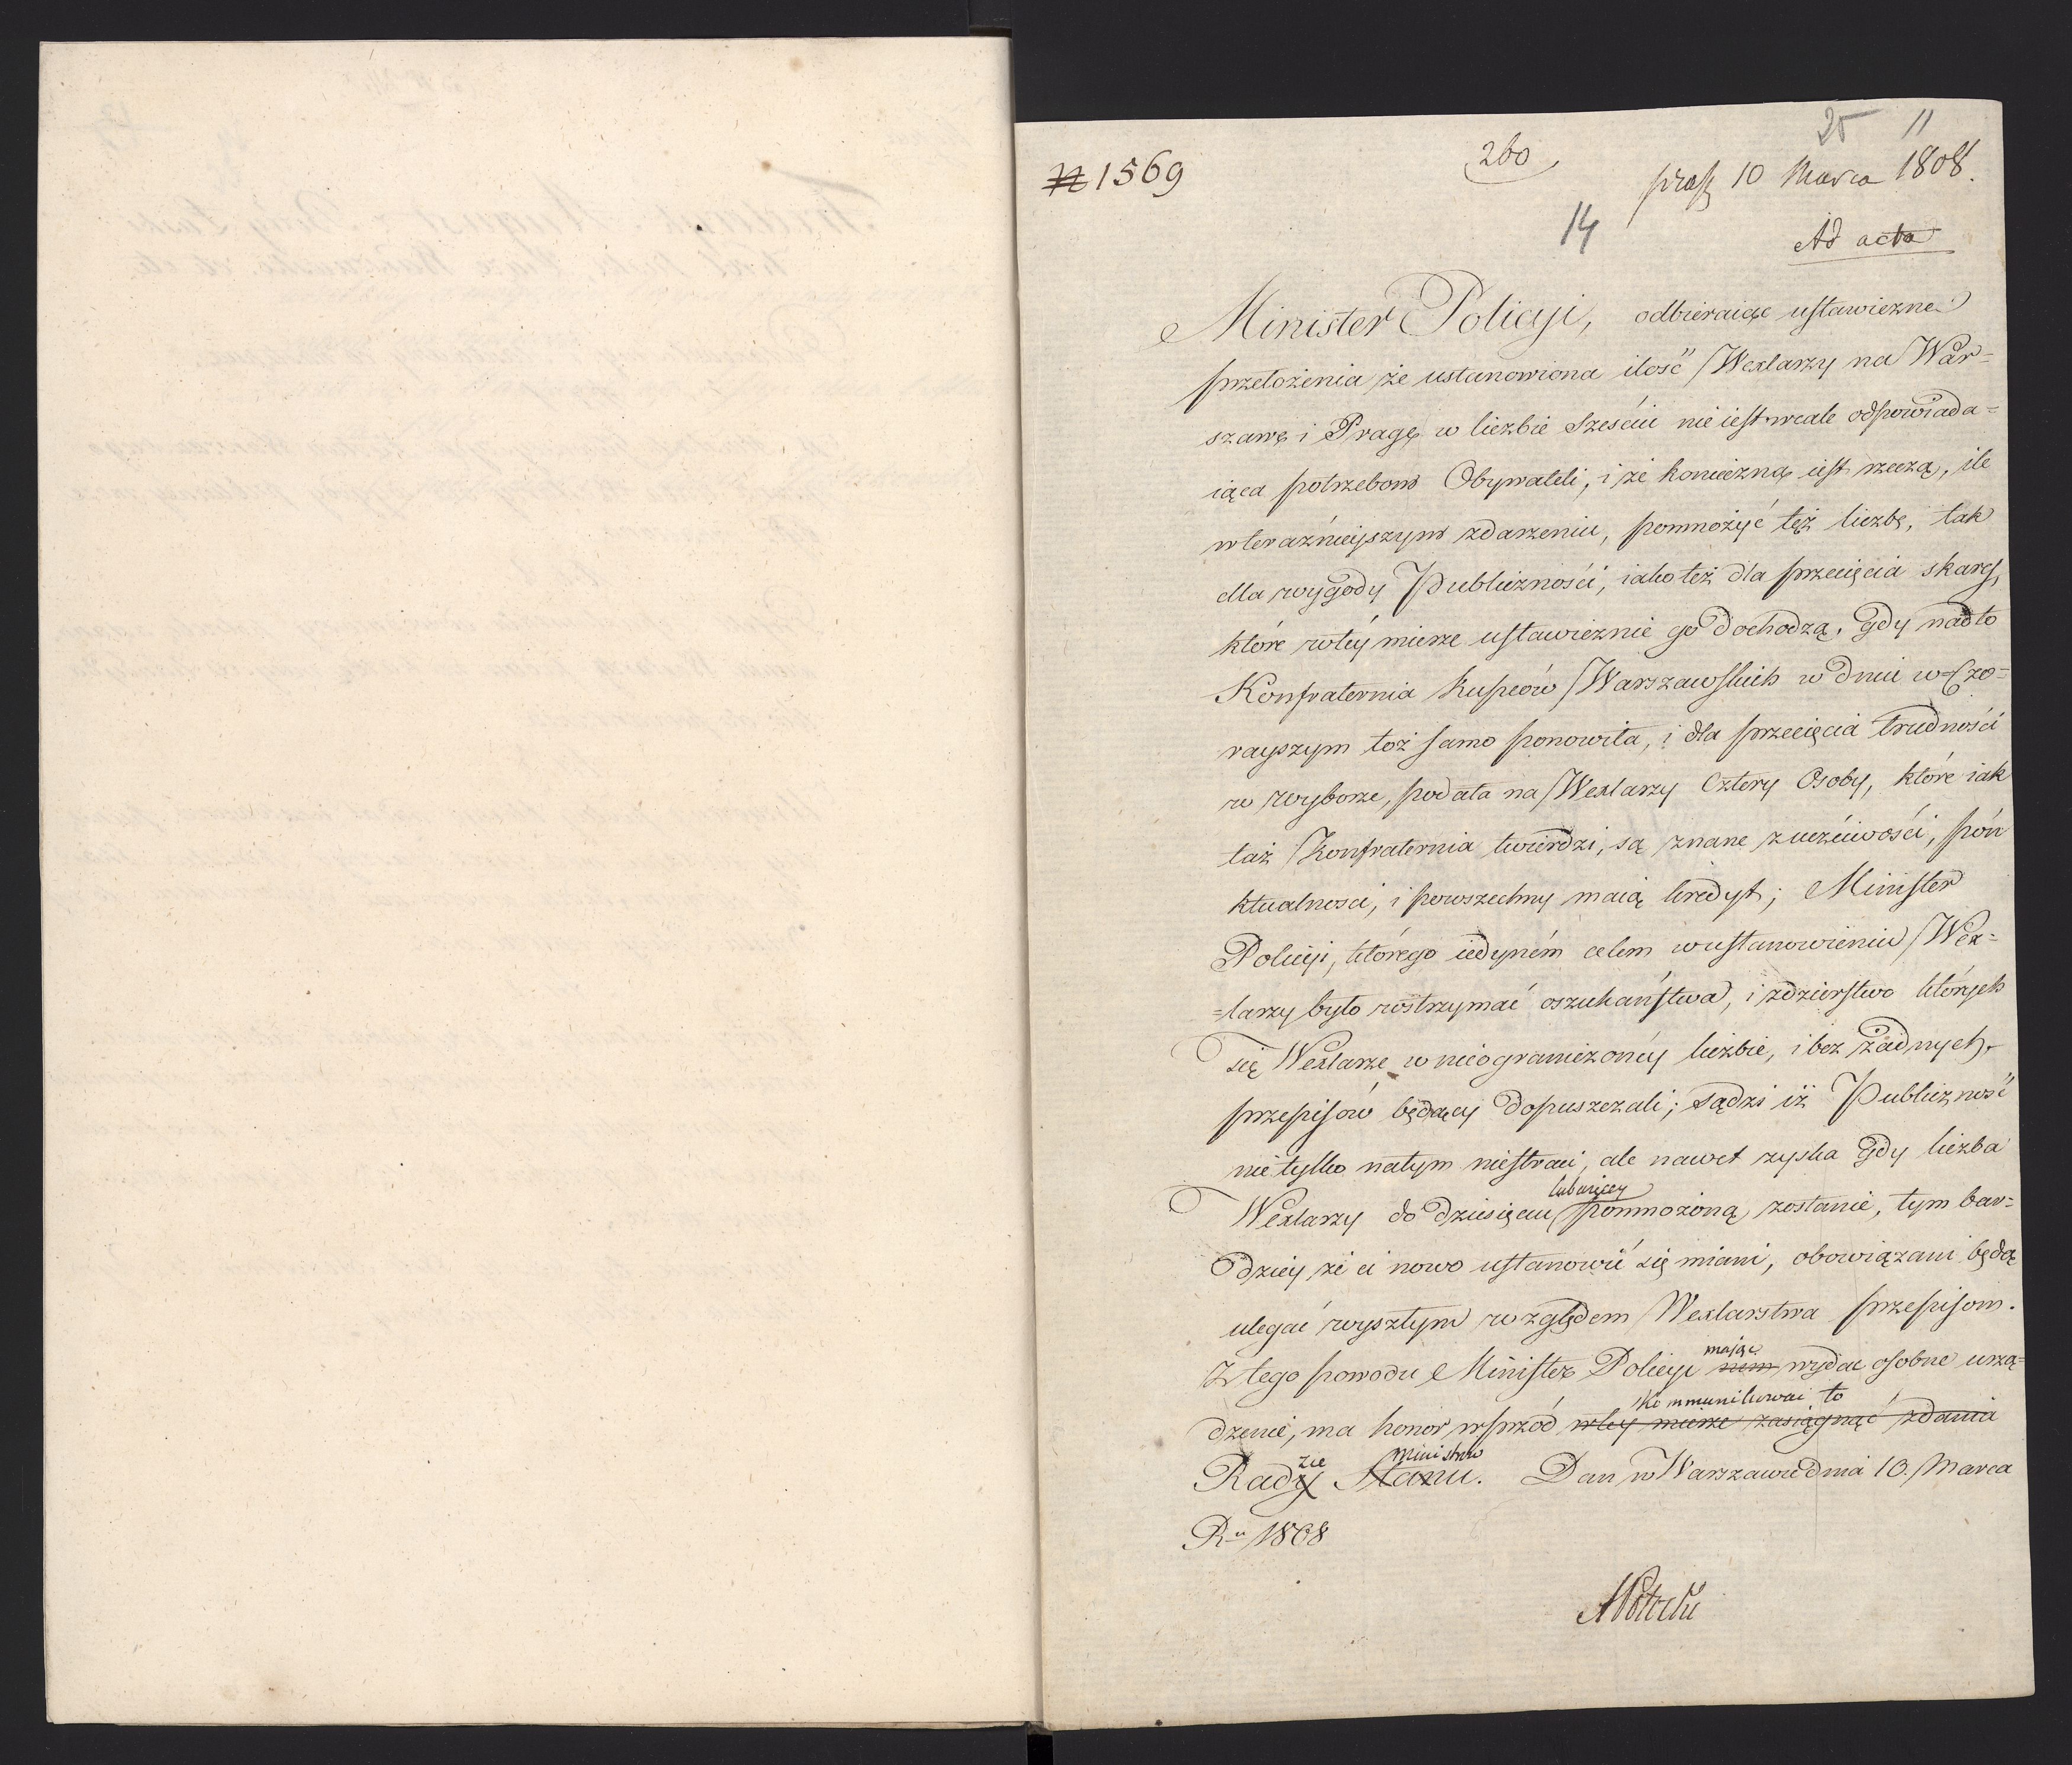 25 11
N 1569
260
praes 10 Marca 1808.
14
Ad acta
Minister Policyi, odbieraiąc ustawiczne
przełożenia że ustanowiona ilość Wexlarzy na War=
szawę i Pragę w liczbie Sześciu nie iest wcale odpowiada=
iąca potrzebom Obywateli, i że konieczną iest rzeczą, ile
w teraźnieyszym zdarzeniu, pomnożyć też liczbę, tak
dla wygody Publiczności, iako też dla przecięcia skarg,
które wtéy mierze ustawicznie go dochodzą. Gdy nadto
Konfraternia Kupców Warszawskich w dniu wczo=
rayszym toż samo ponowiła, i dla przecięcia trudności
w wyborze, podała na Wexlarzy Cztery Osoby, które iak
taż Konfraternia twierdzi, są znane z uczciwości, pón
ktualnosci, i powszechny maią kredyt; Minister
Policyi, którego iedyném celem w ustanowieniu Wex=
=larzy było wstrzymać oszukaństwa, i zdzierstwo których
się Wexlarze w nieograniczonéy liczbie, i bez żadnych
przepisów będący dopuszczali; sądzi iż Publiczność
nie tylko natym niestraci, ale nawet zyska Gdy liczba
lub więcey
Wexlarzy do dziesięciu pomnożoną zostanie, tym bar=
dziey że ci nowo ustanowić się miani, obowiązani będą
ulegać wyszłym względem Wexlarstwa przepisom.
mając
Z tego powodu Minister Policyi nim wydać osobne urzą=
kommunikować to
dzenie, ma honor wprzód wtey mierze zasięgnąć zdania
zie Ministrów
Rady Stanu. Dan w Warszawie dnia 10. Marca
Ru 1808
APotocki